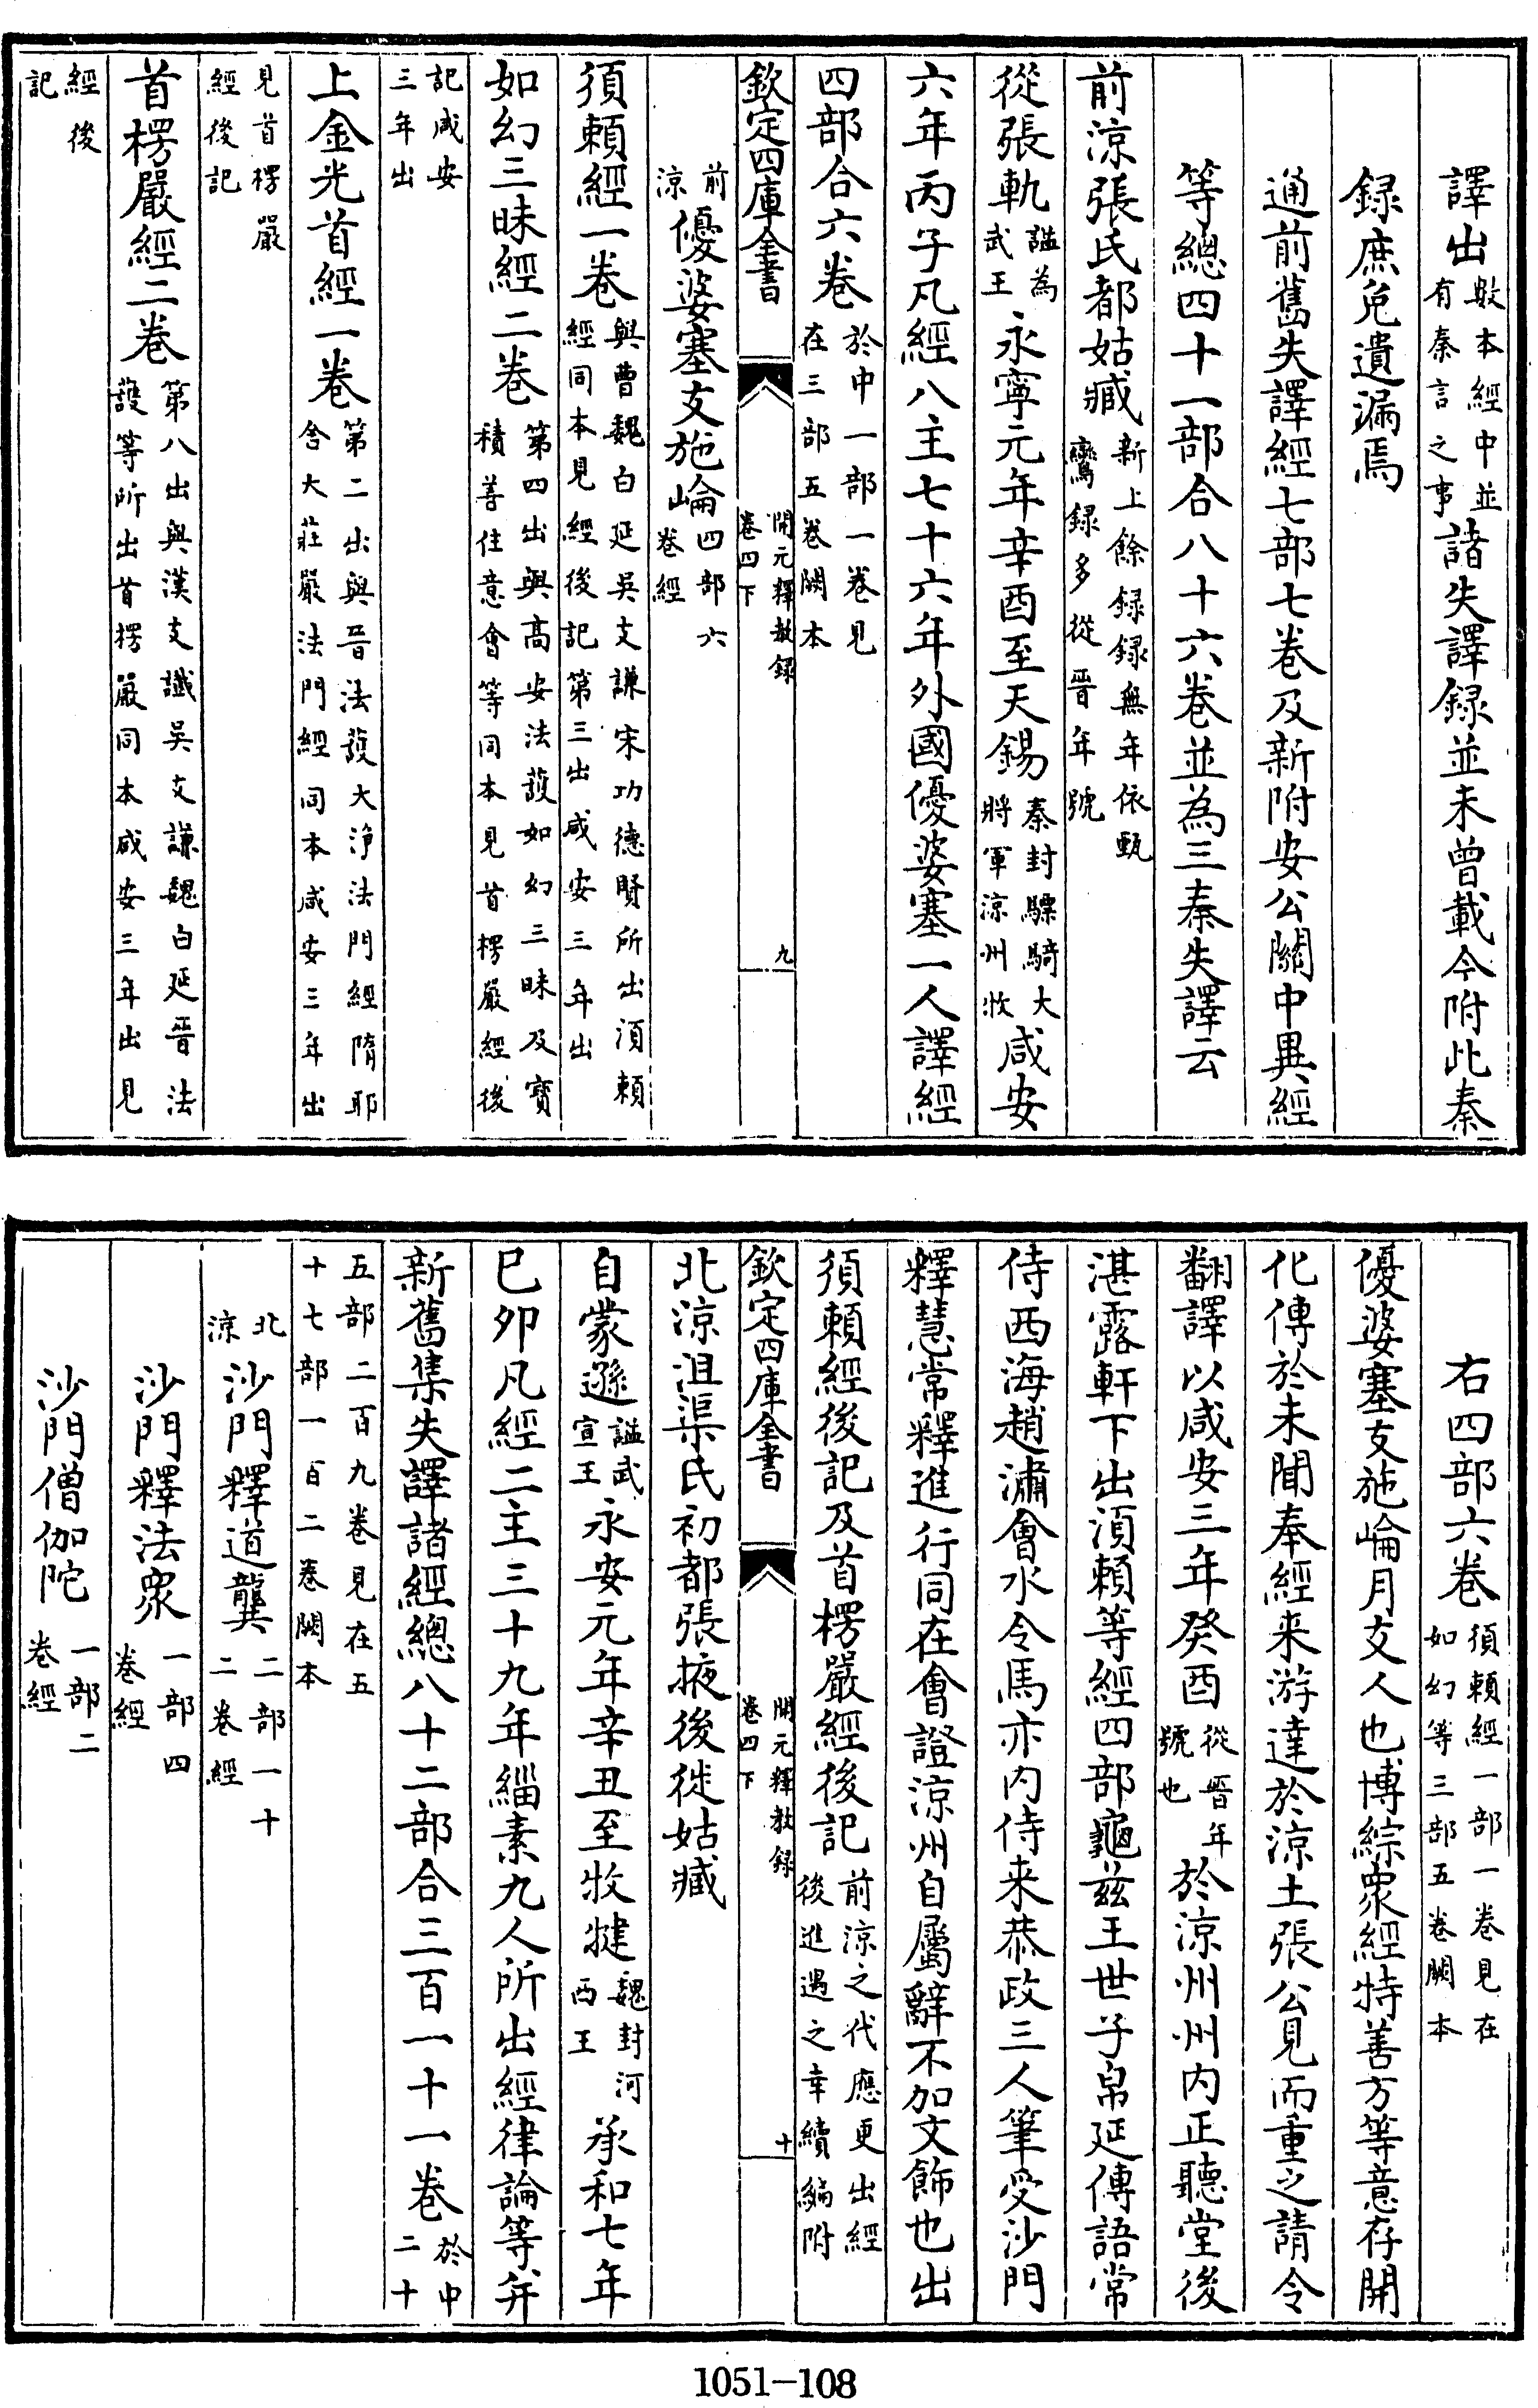 譯出數本經中並有秦言之事諸失譯録並未曾載今附此秦
録庶免遺漏焉
通前舊失譯經七部七卷及新附安公關中異經
等總四十一部合八十六卷並為三秦失譯云
前涼張氏都姑臧新上餘録録無年依甄鸞録多從晉年號
從張軌謚為武王永寧元年辛酉至天錫秦封驃騎大將軍涼州牧咸安
六年丙子凡經八主七十六年外國優婆塞一人譯經
四部合六卷於中一部一卷見在三部五卷闕本
欽定四庫全書 開元釋教録卷四下 九
前涼優婆塞支施崙四部六卷經
須賴經一卷與曹魏白延吳支謙宋功德賢所出湏賴經同本見經後記第三出咸安三年出
如幻三昧經二卷第四出與高安法護如幻三昧及寳積善住意會等同本見首楞嚴經後
記咸安三年出
上金光首經一卷第二出與晉法護大淨法門經隋耶舍大莊嚴法門經同本咸安三年出
見首楞嚴經後記
首楞嚴經二卷第八出與漢支讖吳支謙魏白延晉法護等所出首楞嚴同本咸安三年出見
經後記
右四部六卷須賴經一部一卷見在如幻等三部五卷闕本
優婆塞支施崙月支人也博綜衆經特善方等意存開
化傳於未聞奉經来游達於涼土張公見而重之請令
翻譯以咸安三年癸酉從晉年號也於涼州州内正聽堂後
湛露軒下出湏賴等經四部龜兹王世子帛延傳語常
侍西海趙潚會水令馬亦内侍来恭政三人筆受沙門
釋慧常釋進行同在會證涼州自屬辭不加文飾也出
須賴經後記及首楞嚴經後記前涼之代應更出經後進遇之幸續編附
欽定四庫全書 開元釋教録卷四下 十
北涼沮渠氏初都張掖後徙姑臧
自蒙遜謚武宣王永安元年辛丑至牧犍魏封河西王承和七年
巳卯凡經二主三十九年緇素九人所出經律論等并
新舊集失譯諸經總八十二部合三百一十一卷於中二十
五部二百九卷見在五十七部一百二卷闕本
北涼沙門釋道龔二部一十二卷經
沙門釋法衆一部四卷經
沙門僧伽陀一部二卷經
1051-108